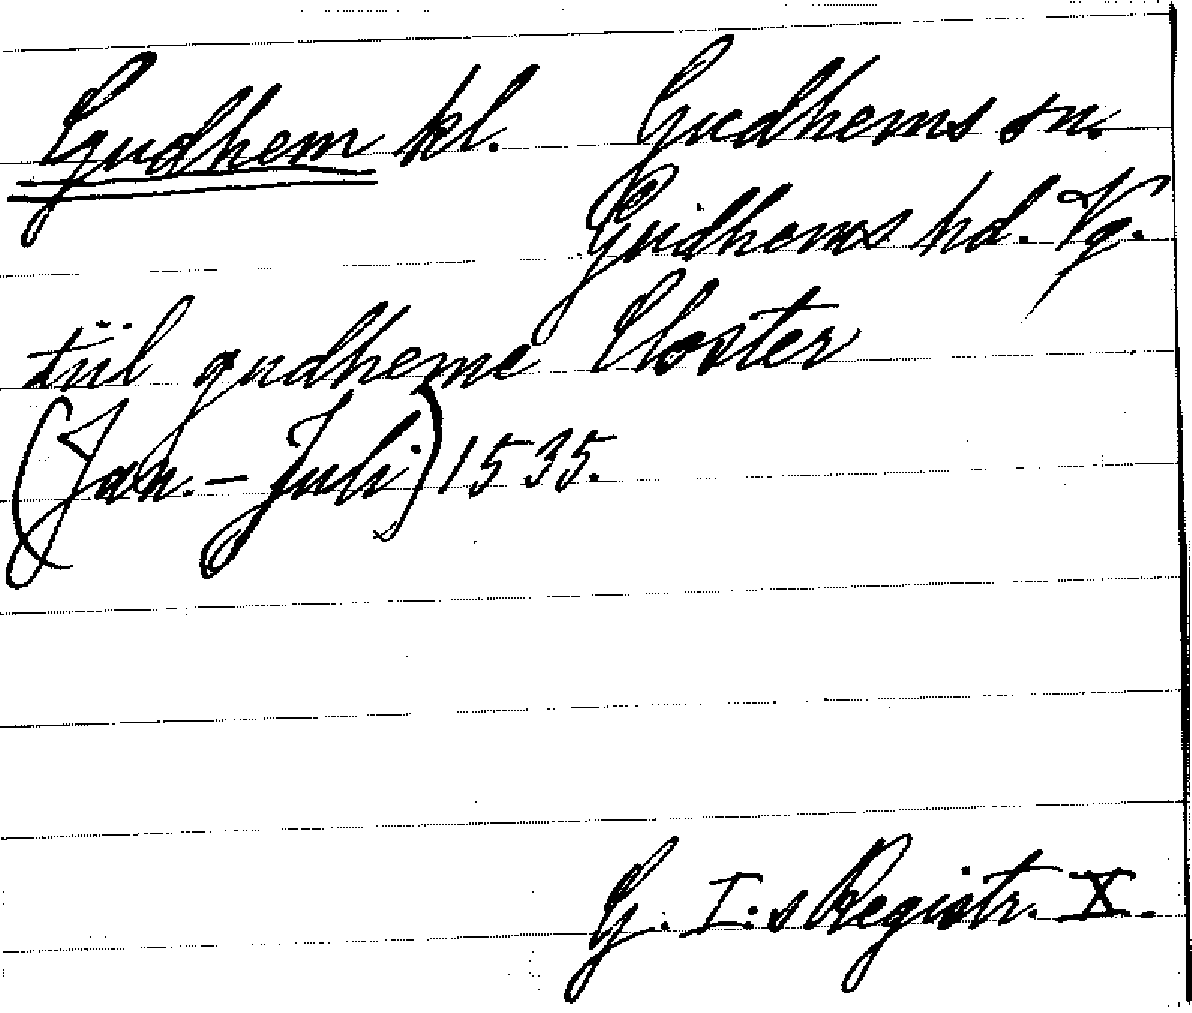 Gudhem kl. Gudhems sn.
Gudhems hd. Vg.
tiil gudheme Closter
(Jan. - Juli) 1535.
G. I:s Registr. X.